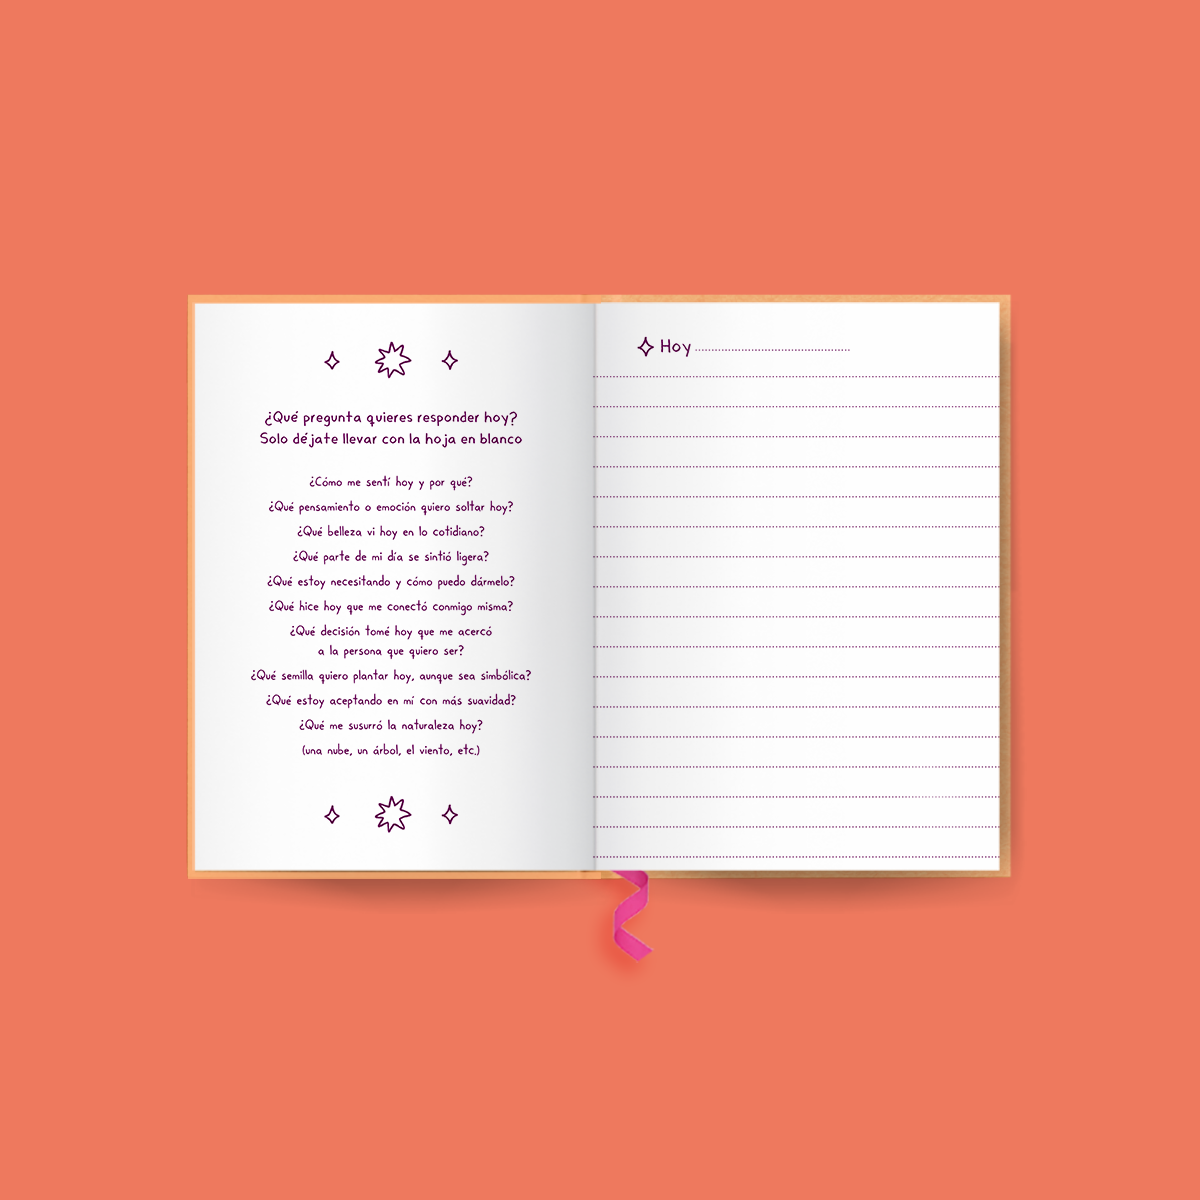 ¿Qué pregunta quieres responder hoy?
Solo déjate llevar con la hoja en blanco
¿Cómo me sentí hoy y por qué?
¿Qué pensamiento o emoción quiero soltar hoy?
¿Qué belleza vi hoy en lo cotidiano?
¿Qué parte de mi día se sintió ligera?
¿Qué estoy necesitando y cómo puedo dármelo?
¿Qué hice hoy que me conectó conmigo misma?
¿Qué decisión tomé hoy que me acercó
a la persona que quiero ser?
¿Qué semilla quiero plantar hoy, aunque sea simbólica?
¿Qué estoy aceptando en mí con más suavidad?
¿Qué me susurró la naturaleza hoy?
(una nube, un árbol, el viento, etc.)
Hoy